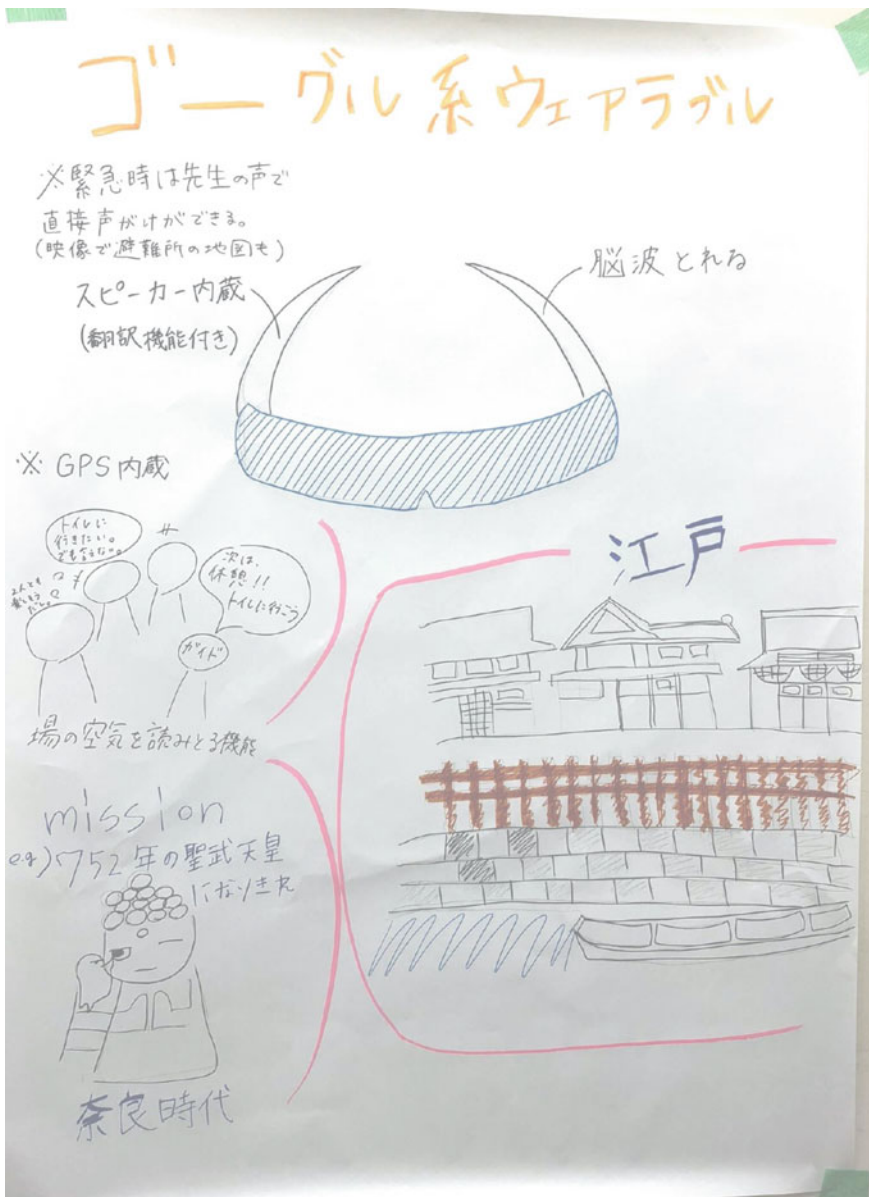 ゴーグル系ウェアラブル
※緊急時は先生の声で
直接声がけができる。
(映像で避難所の地図も)
スピーカー内蔵
(翻訳機能付き)
脳波とれる
※ GPS内蔵
トイレに
行きたい。
でも言えない。
次は、
休憩!!
トイレに行こう
ガイド
場の空気を読みとる機能
mission
e.g.) 752年の聖武天皇
になりきれ
奈良時代
江戸